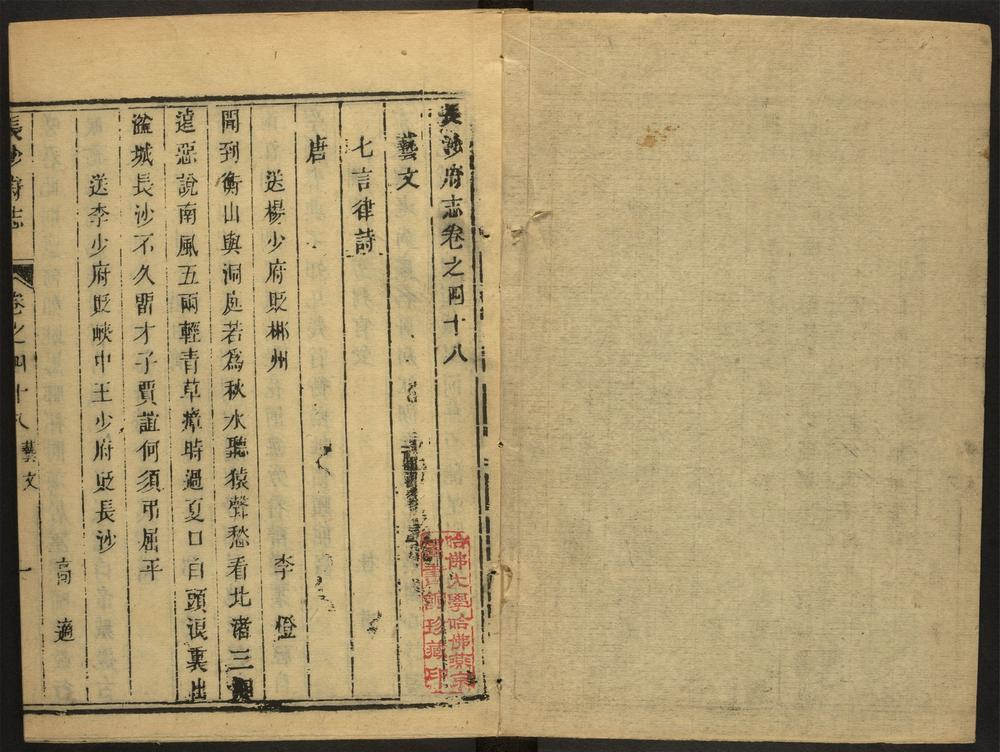 長沙府志卷之四十八
藝文
七言律詩
唐
送楊少府貶郴州
李燈
聞到衡山與洞庭若爲秋水聽猿聲愁看北渚三
遠惡說南風五兩輕青草瘴時過夏口白頭浪裏出
湓城長沙不久畱才子賈誼何須弔屈平
送李少府貶峽中王少府貶長沙
高適
長沙府志
卷之四十八
藝文
一
哈佛大學哈佛燕京
圖書館珍藏印